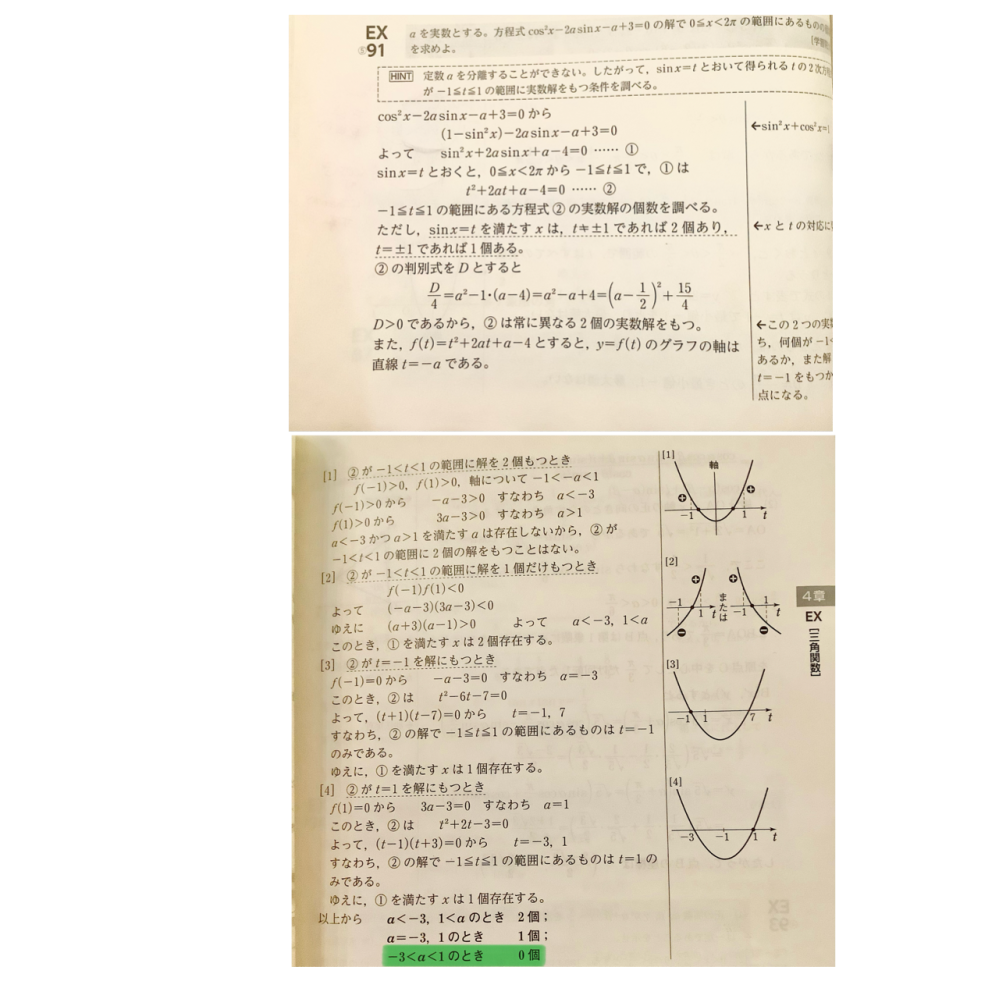 EX
91
aを実数とする。方程式 cos²x−2a sin x−a+3=0 の解で 0≦x<2π の範囲にあるものの
を求めよ。
HINT 定数 a を分離することができない。したがって，sin x=t とおいて得られる t の2次方
が −1≦t≦1 の範囲に実数解をもつ条件を調べる。
cos²x−2a sin x−a+3=0 から
(1−sin²x)−2a sin x−a+3=0
よって sin²x+2a sin x+a−4=0 …… ①
←sin²x+cos²x=1
sin x=t とおくと，0≦x<2π から −1≦t≦1 で，① は
t²+2at+a−4=0 …… ②
−1≦t≦1 の範囲にある方程式 ② の実数解の個数を調べる。
ただし，sin x=t を満たす x は，t≠±1 であれば2個あり，
←x と t の対応に
t=±1 であれば1個ある。
② の判別式を D とすると
D/4=a²−1・(a−4)=a²−a+4=(a−1/2)²+15/4
D>0 であるから，② は常に異なる2個の実数解をもつ。
また，f(t)=t²+2at+a−4 とすると，y=f(t) のグラフの軸は
直線 t=−a である。
←この2つの実
ち，何個が −1
あるか，また解
t=−1 をもつか
点になる。
[1] ② が −1<t<1 の範囲に解を2個もつとき
f(−1)>0，f(1)>0，軸について −1<−a<1
f(−1)>0 から −a−3>0 すなわち a<−3
f(1)>0 から 3a−3>0 すなわち a>1
a<−3 かつ a>1 を満たす a は存在しないから，② が
−1<t<1 の範囲に2個の解をもつことはない。
[2] ② が −1<t<1 の範囲に解を1個だけもつとき
f(−1)f(1)<0
よって (−a−3)(3a−3)<0
ゆえに (a+3)(a−1)>0 よって a<−3，1<a
このとき，① を満たす x は2個存在する。
[3] ② が t=−1 を解にもつとき
f(−1)=0 から −a−3=0 すなわち a=−3
このとき，② は t²−6t−7=0
よって，(t+1)(t−7)=0 から t=−1, 7
すなわち，② の解で −1≦t≦1 の範囲にあるものは t=−1
のみである。
ゆえに，① を満たす x は1個存在する。
[4] ② が t=1 を解にもつとき
f(1)=0 から 3a−3=0 すなわち a=1
このとき，② は t²+2t−3=0
よって，(t−1)(t+3)=0 から t=−3, 1
すなわち，② の解で −1≦t≦1 の範囲にあるものは t=1 の
みである。
ゆえに，① を満たす x は1個存在する。
以上から a<−3，1<a のとき 2個；
a=−3，1 のとき 1個；
−3<a<1 のとき 0個
[1]
軸
+ +
−1 1 t
[2]
+ +
−1 1 t または −1 1 t
− −
[3]
−1 1 7 t
[4]
−3 −1 1 t
4章
EX
[三角関数]